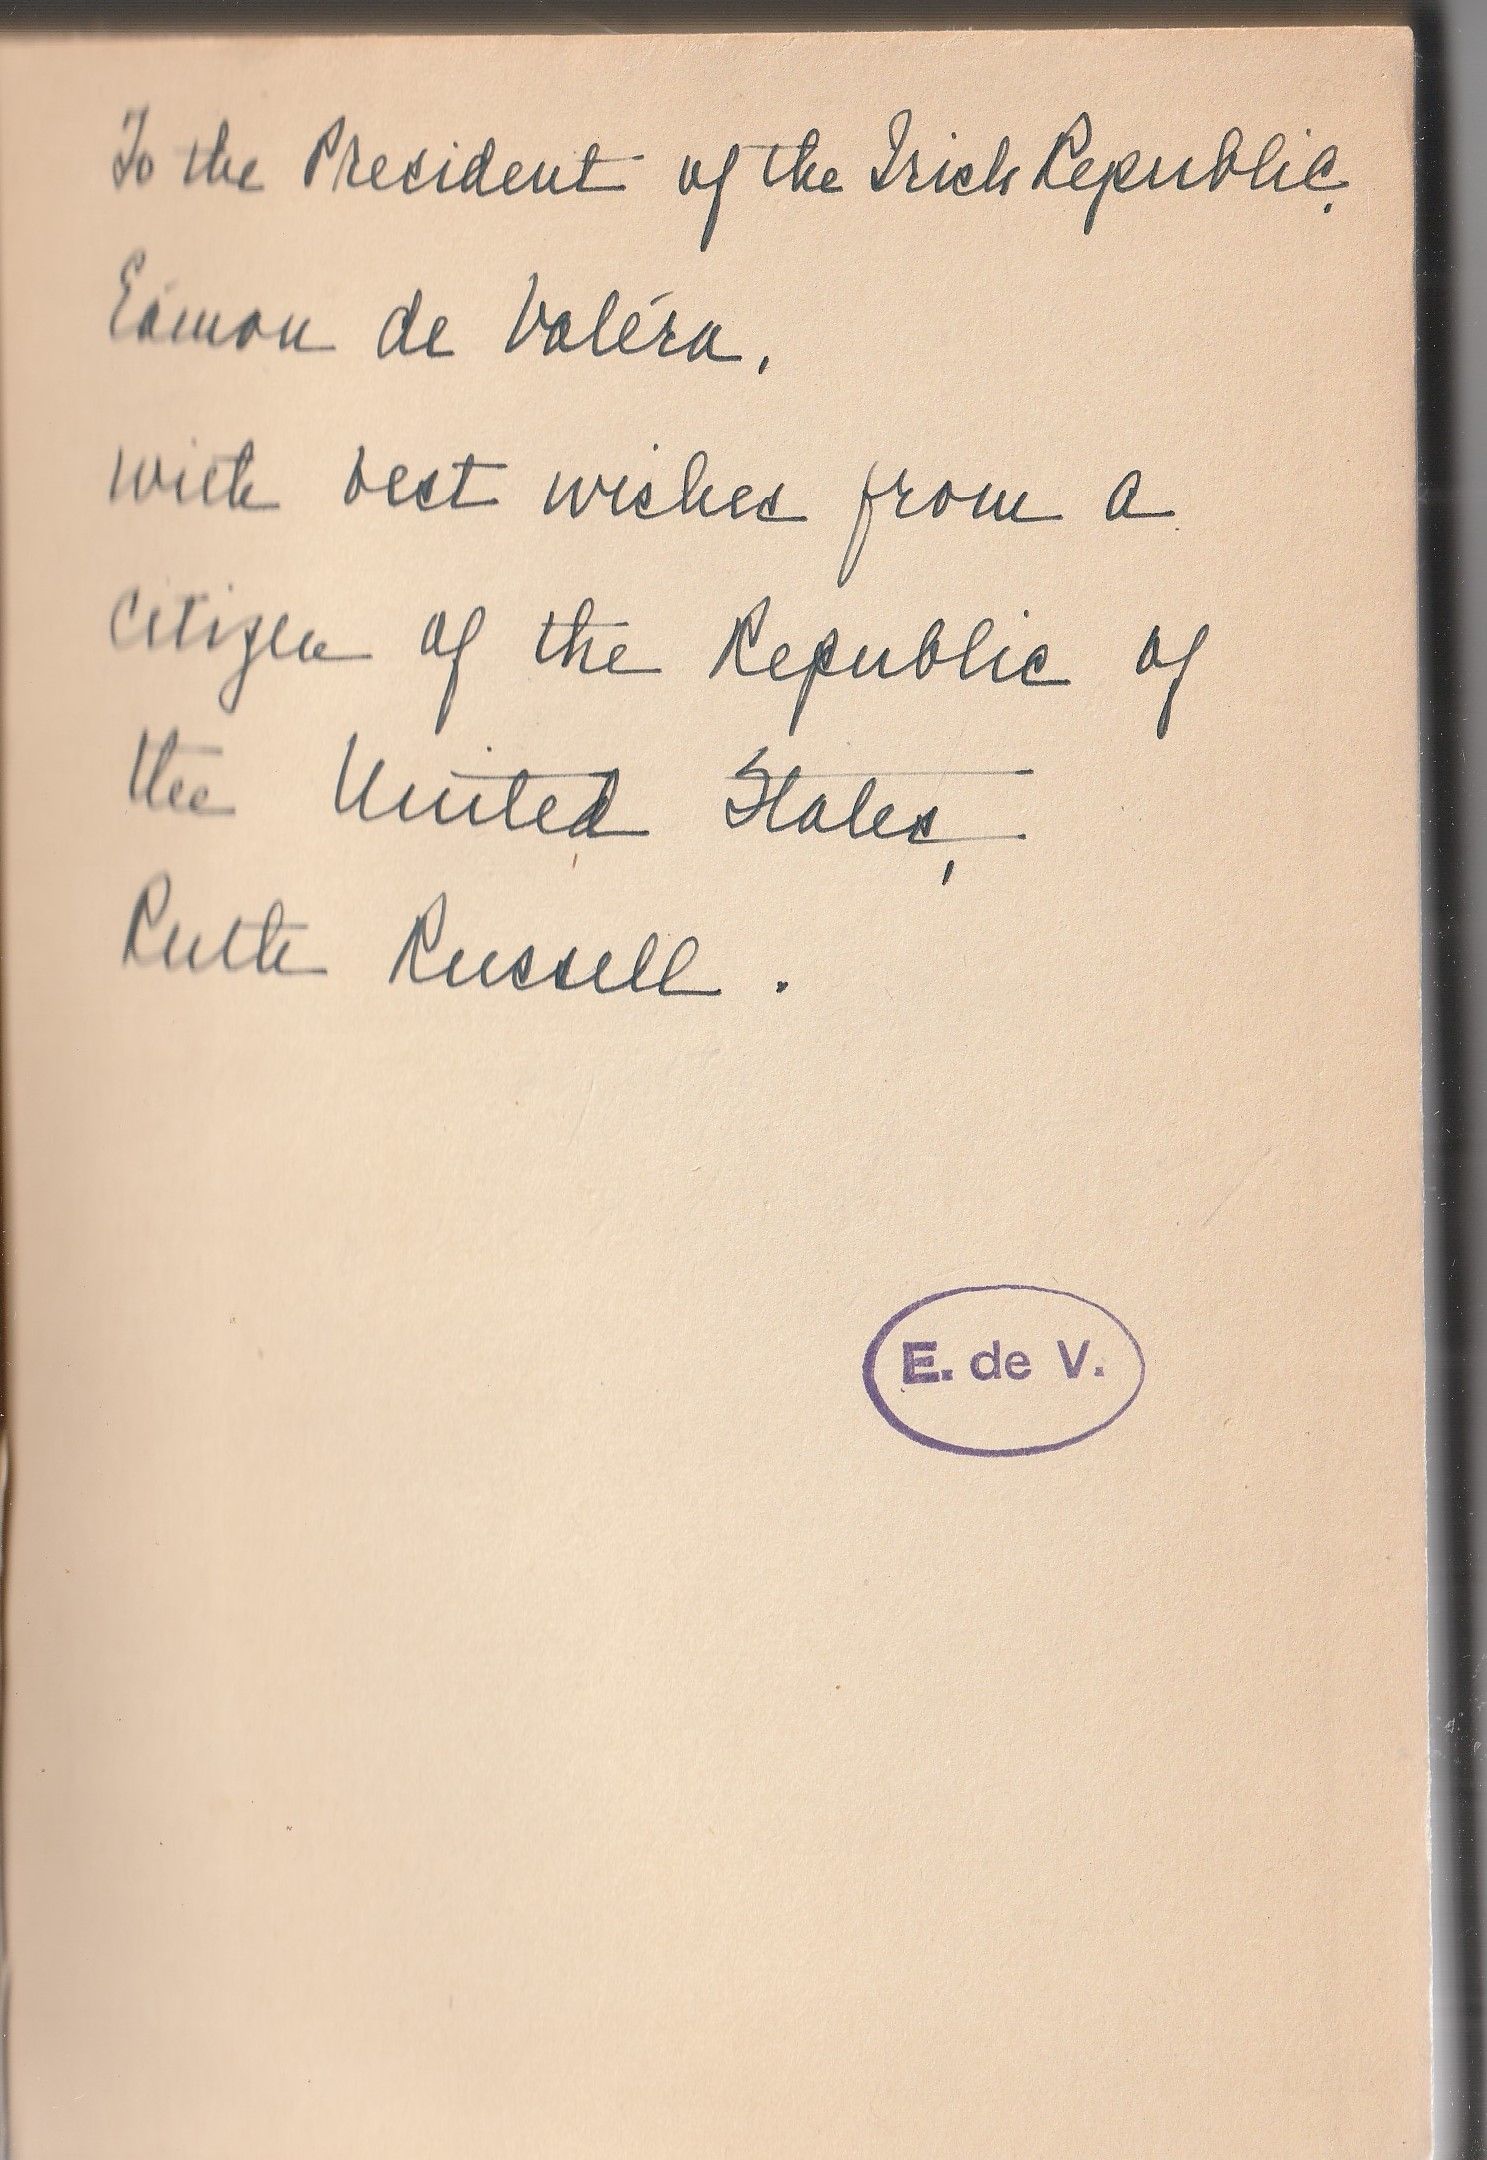 To the President of the Irish Republic,
Eámon de Valéra,
with best wishes from a
citizen of the Republic of
the United States,
Ruth Russell.
E. de V.